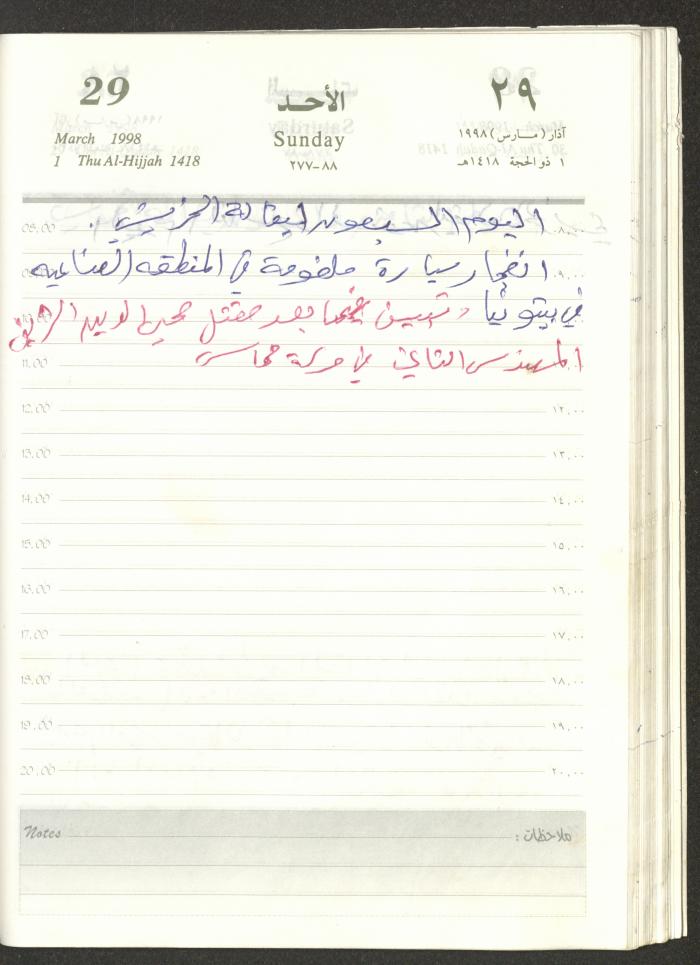 29 الأحد ٢٩
March 1998 Sunday آذار (مارس) ١٩٩٨
1 Thu Al-Hijjah 1418 ٨٨-٢٧٧ ١ ذو الحجة ١٤١٨هـ
08.00 اليوم السبعون ٨.٠٠
انفجار سيارة ملغومة في المنطقه الصناعيه ٩.٠٠
في بيتونيا وتبين بعد مقتل محي الدين الشريف
11.00 المهندس الثاني في حركة حماس ١١.٠٠
12.00 ١٢.٠٠
13.00 ١٣.٠٠
14.00 ١٤.٠٠
15.00 ١٥.٠٠
16.00 ١٦.٠٠
17.00 ١٧.٠٠
18.00 ١٨.٠٠
19.00 ١٩.٠٠
20.00 ٢٠.٠٠
Notes ملاحظات :